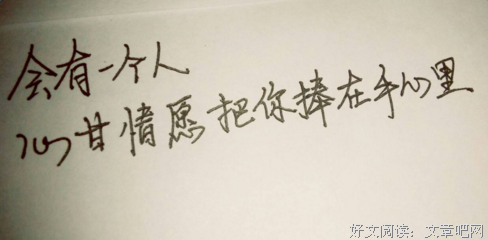 会有一个人
心甘情愿把你捧在手心里
好文阅读：文章吧网